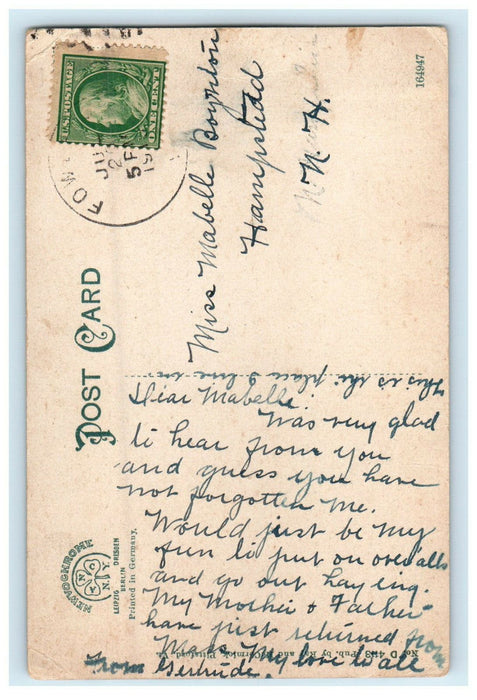 U.S. POSTAGE
ONE CENT
FOW
JU
2
5 P
19
164947
Miss Mabelle Boynton
Hampstedd
N. H.
POST CARD
This is the place I live in
Dear Mabelle:
Was very glad
to hear from you
and guess you have
not forgotten me.
Would just be my
fun to put on overalls
and go out haying.
My Mother & Father
have just returned from
Mass. My love to all
From Gertrude.
NEWVOCHROME
N.Y.
LEIPZIG
BERLIN
DRESDEN
Printed in Germany.
No. D 4113 Pub. by and McCormick, Pittsford, Vt.